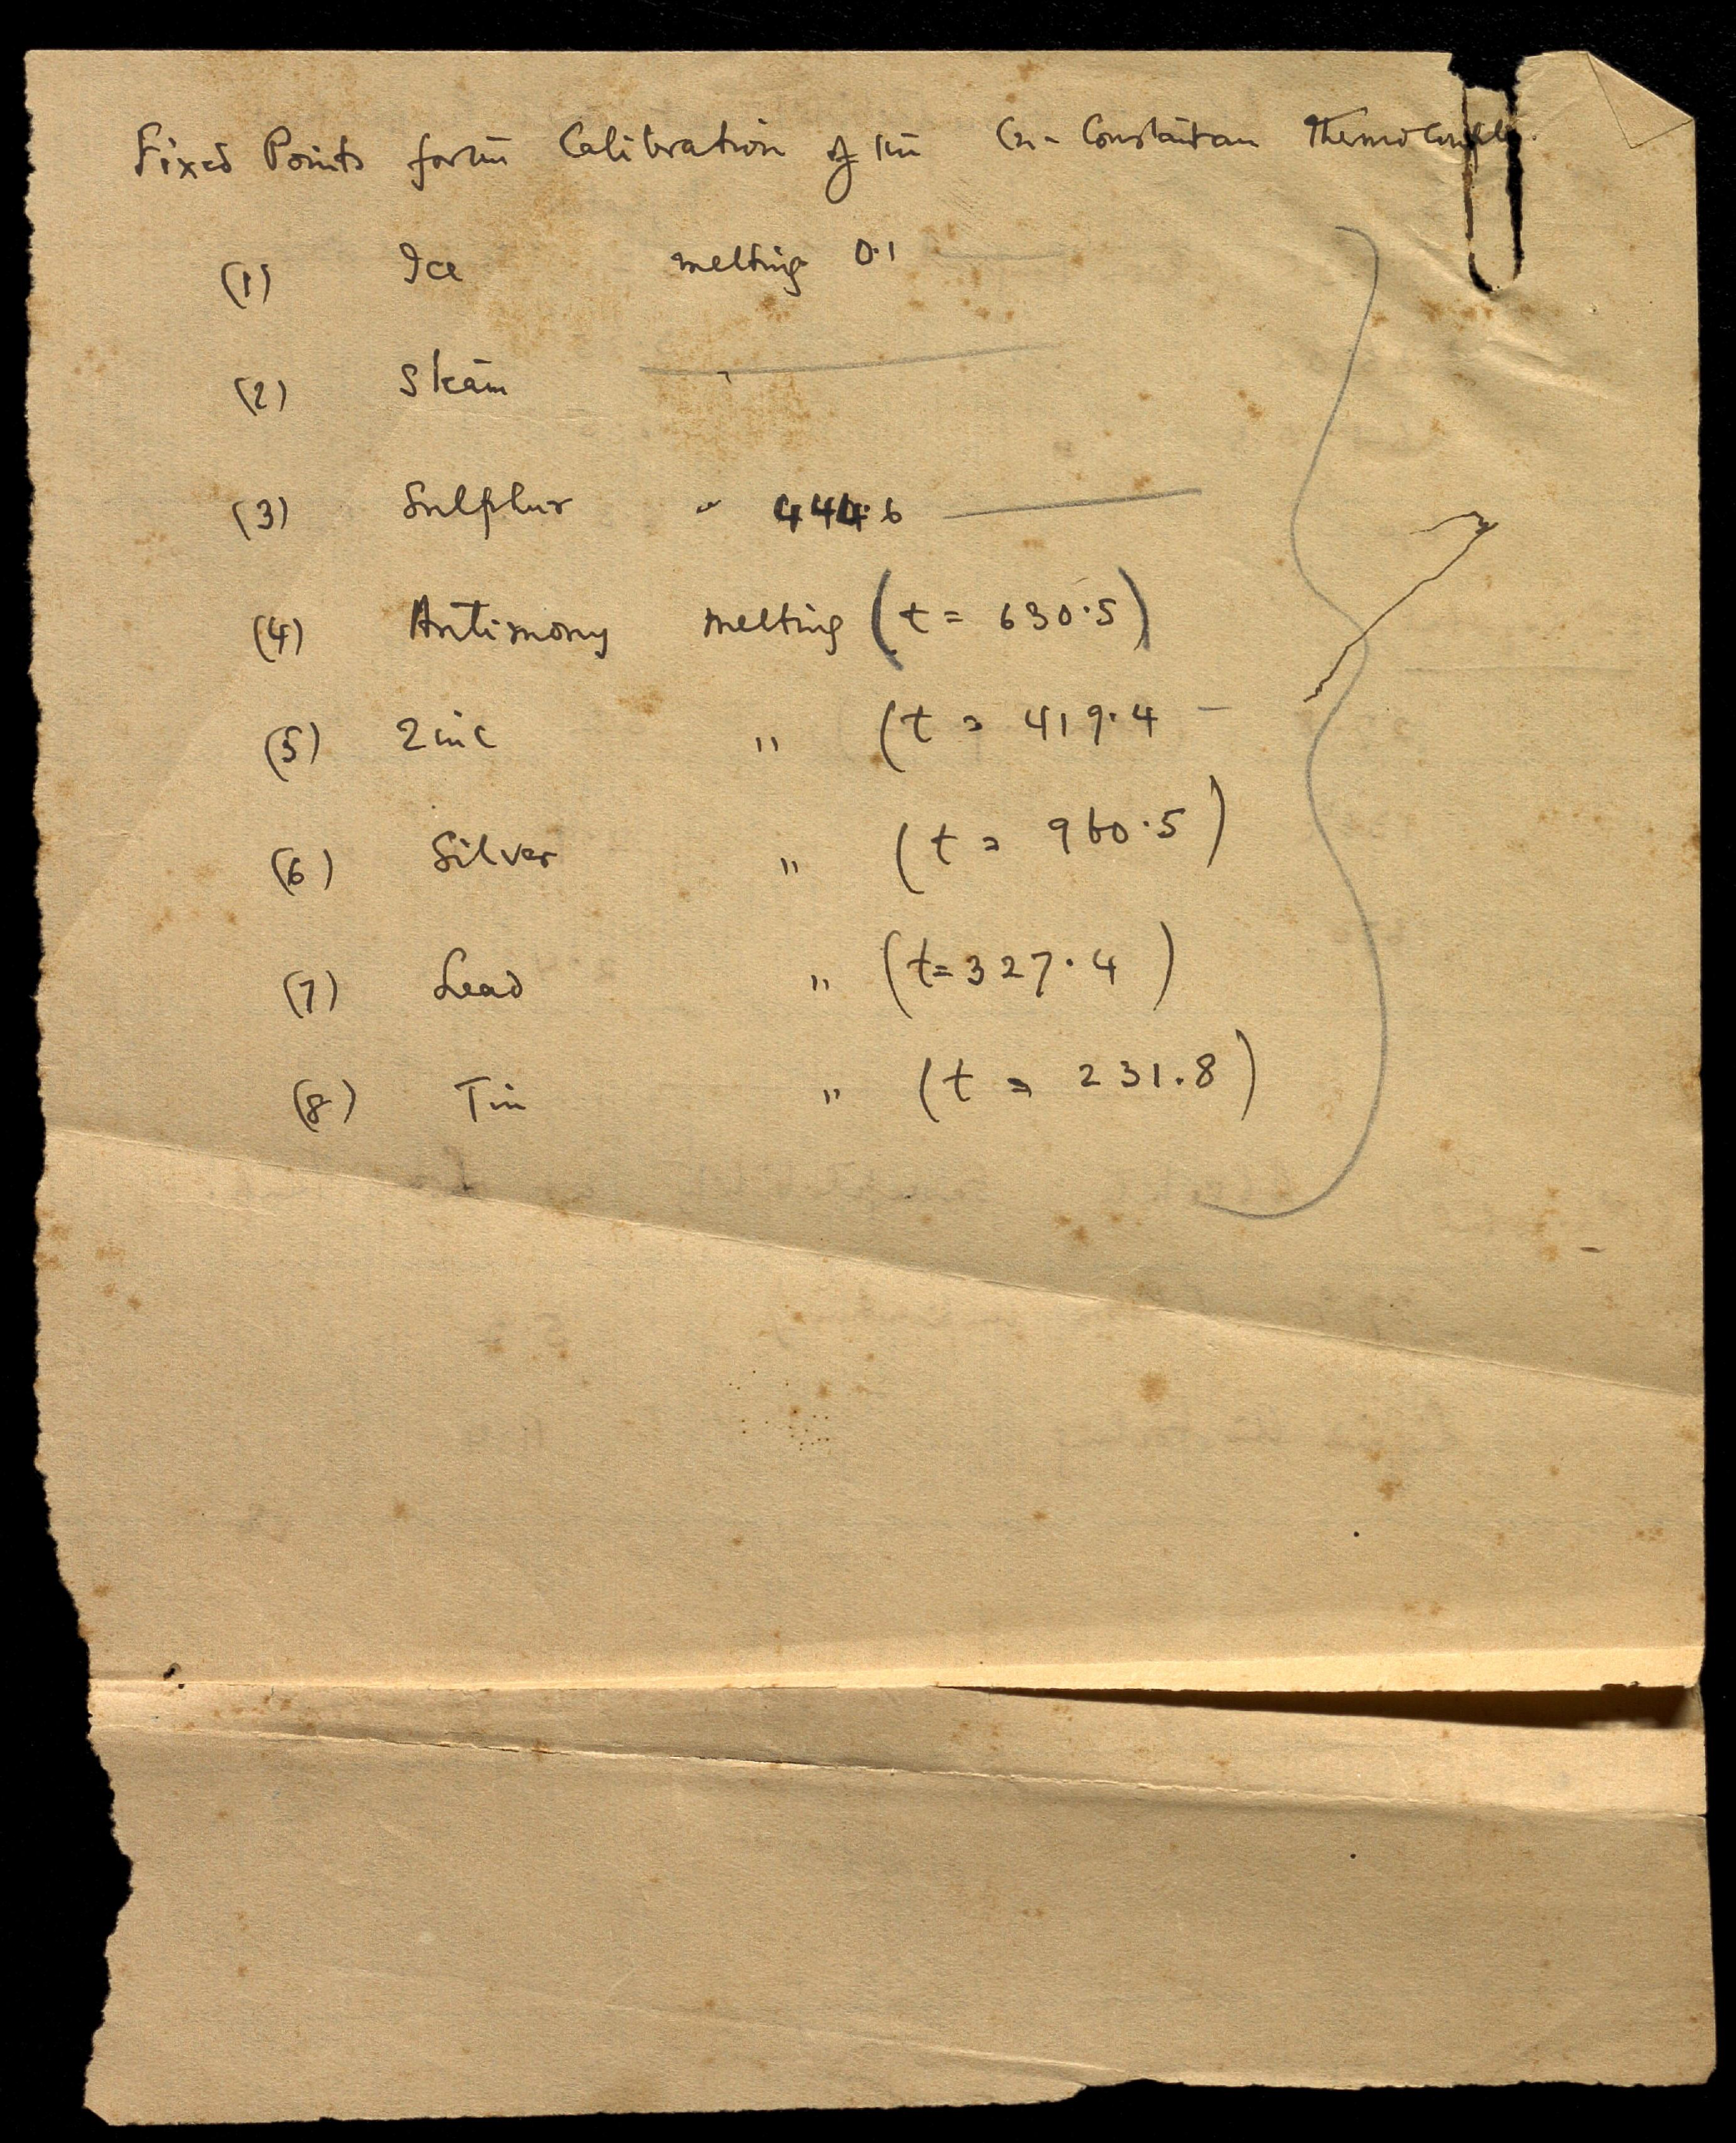 Fixed Points for the Calibration of the Cu-Constantan Thermocouple.
(1) Ice melting 0.1
(2) Steam
(3) Sulphur " 444.6
(4) Antimony melting (t = 630.5)
(5) Zinc " (t = 419.4
(6) Silver " (t = 960.5)
(7) Lead " (t = 327.4)
(8) Tin " (t = 231.8)